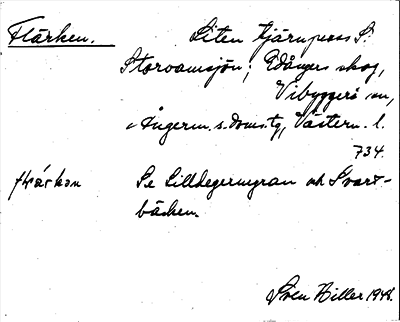 Flärken. Liten tjärnpass S.
Storvamsjön; Edångers skog,
Vibyggerå sn,
Ångerm. s. doms.tg, Västern. l.
734.
flärkən Se Lilldegermyran och Svart-
bäcken.
Sven Hiller 1948.